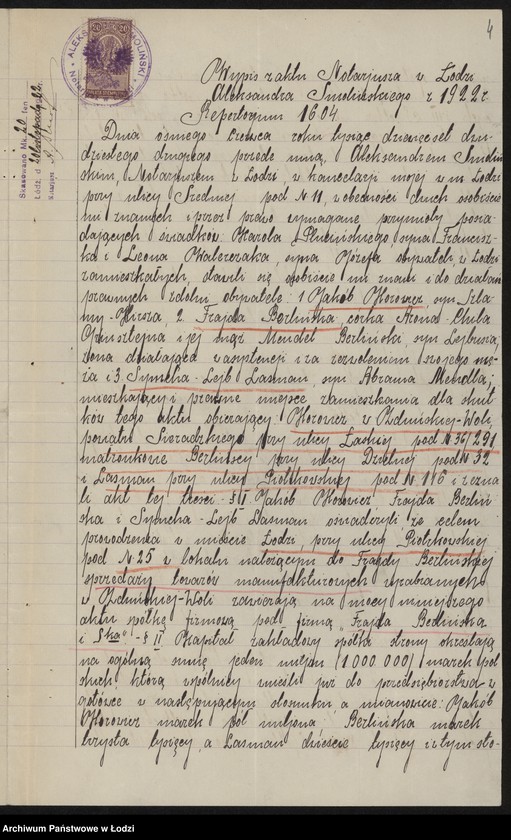 4
ALEKS MOLIŃSKI
Skasowano Mk. 20 fen
Łódź, d. 22.
Notarjusz
Wypis z aktu Notarjusza w Łodzi
Aleksandra Smolińskiego z 1922 r.
Repertorjum 1604
Dnia ósmego czerwca roku tysiąc dziewięćset dwu-
dziestego drugiego przede mną, Aleksandrem Smoliń-
skim, Notarjuszem w Łodzi, w kancelarji mojej w m. Łodzi
przy ulicy Średniej pod № 11, w obecności dwuch osobiście
mi znanych i przez prawo wymagane przymioty posia-
dających świadków: Karola syna Francisz-
ka i Leona syna Józefa obywateli, w Łodzi
zamieszkałych, stawili się osobiście mi znani i do działań
prawnych zdolni obywatele: 1 Jakób Horowicz, syn Szla-
my-Hersza, 2. Frajda Berlińska córka Arona-Chila
i jej mąż Mendel Berliński, syn Lejbusia,
żona działająca w asystencji i za zezwoleniem swojego mę-
ża i 3 Symcha-Lejb Lasman, syn Abrama Mendla,
mieszkający i prawne miejsce zamieszkania dla skut-
ków tego aktu obierający: Horowicz w Zduńskiej-Woli,
powiatu Sieradzkiego przy ulicy Łaskiej pod № 36/291
małżonkowie Berlińscy przy ulicy Dzielnej pod № 32
i Lasman przy ulicy Piotrkowskiej pod № 116 i zezna-
li akt tej treści - § I Jakób Horowicz Frajda Berliń-
ska i Symcha-Lejb Lasman oświadczyli, że celem
prowadzenia w mieście Łodzi, przy ulicy Piotrkowskiej
pod № 25 w lokalu należącym do Frajdy Berlińskiej
sprzedaży towarów manufakturowych wyrabianych
w Zduńskiej-Woli zawierają na mocy niniejszego
aktu spółkę firmową pod firmą "Frajda Berlińska
i S-ka" - § II Kapitał zakładowy spółki strony określają
na ogólną sumę jeden miljon (1000 000) marek pol-
skich, którą wspólnicy wnieśli już do przedsiębiorstwa w
gotówce w następującym stosunku, a mianowicie: Jakób
Horowicz marek pół miljona, Berlińska marek
trzysta tysięcy, a Lasman dwieście tysięcy i w tym sto-
Archiwum Państwowe w Łodzi